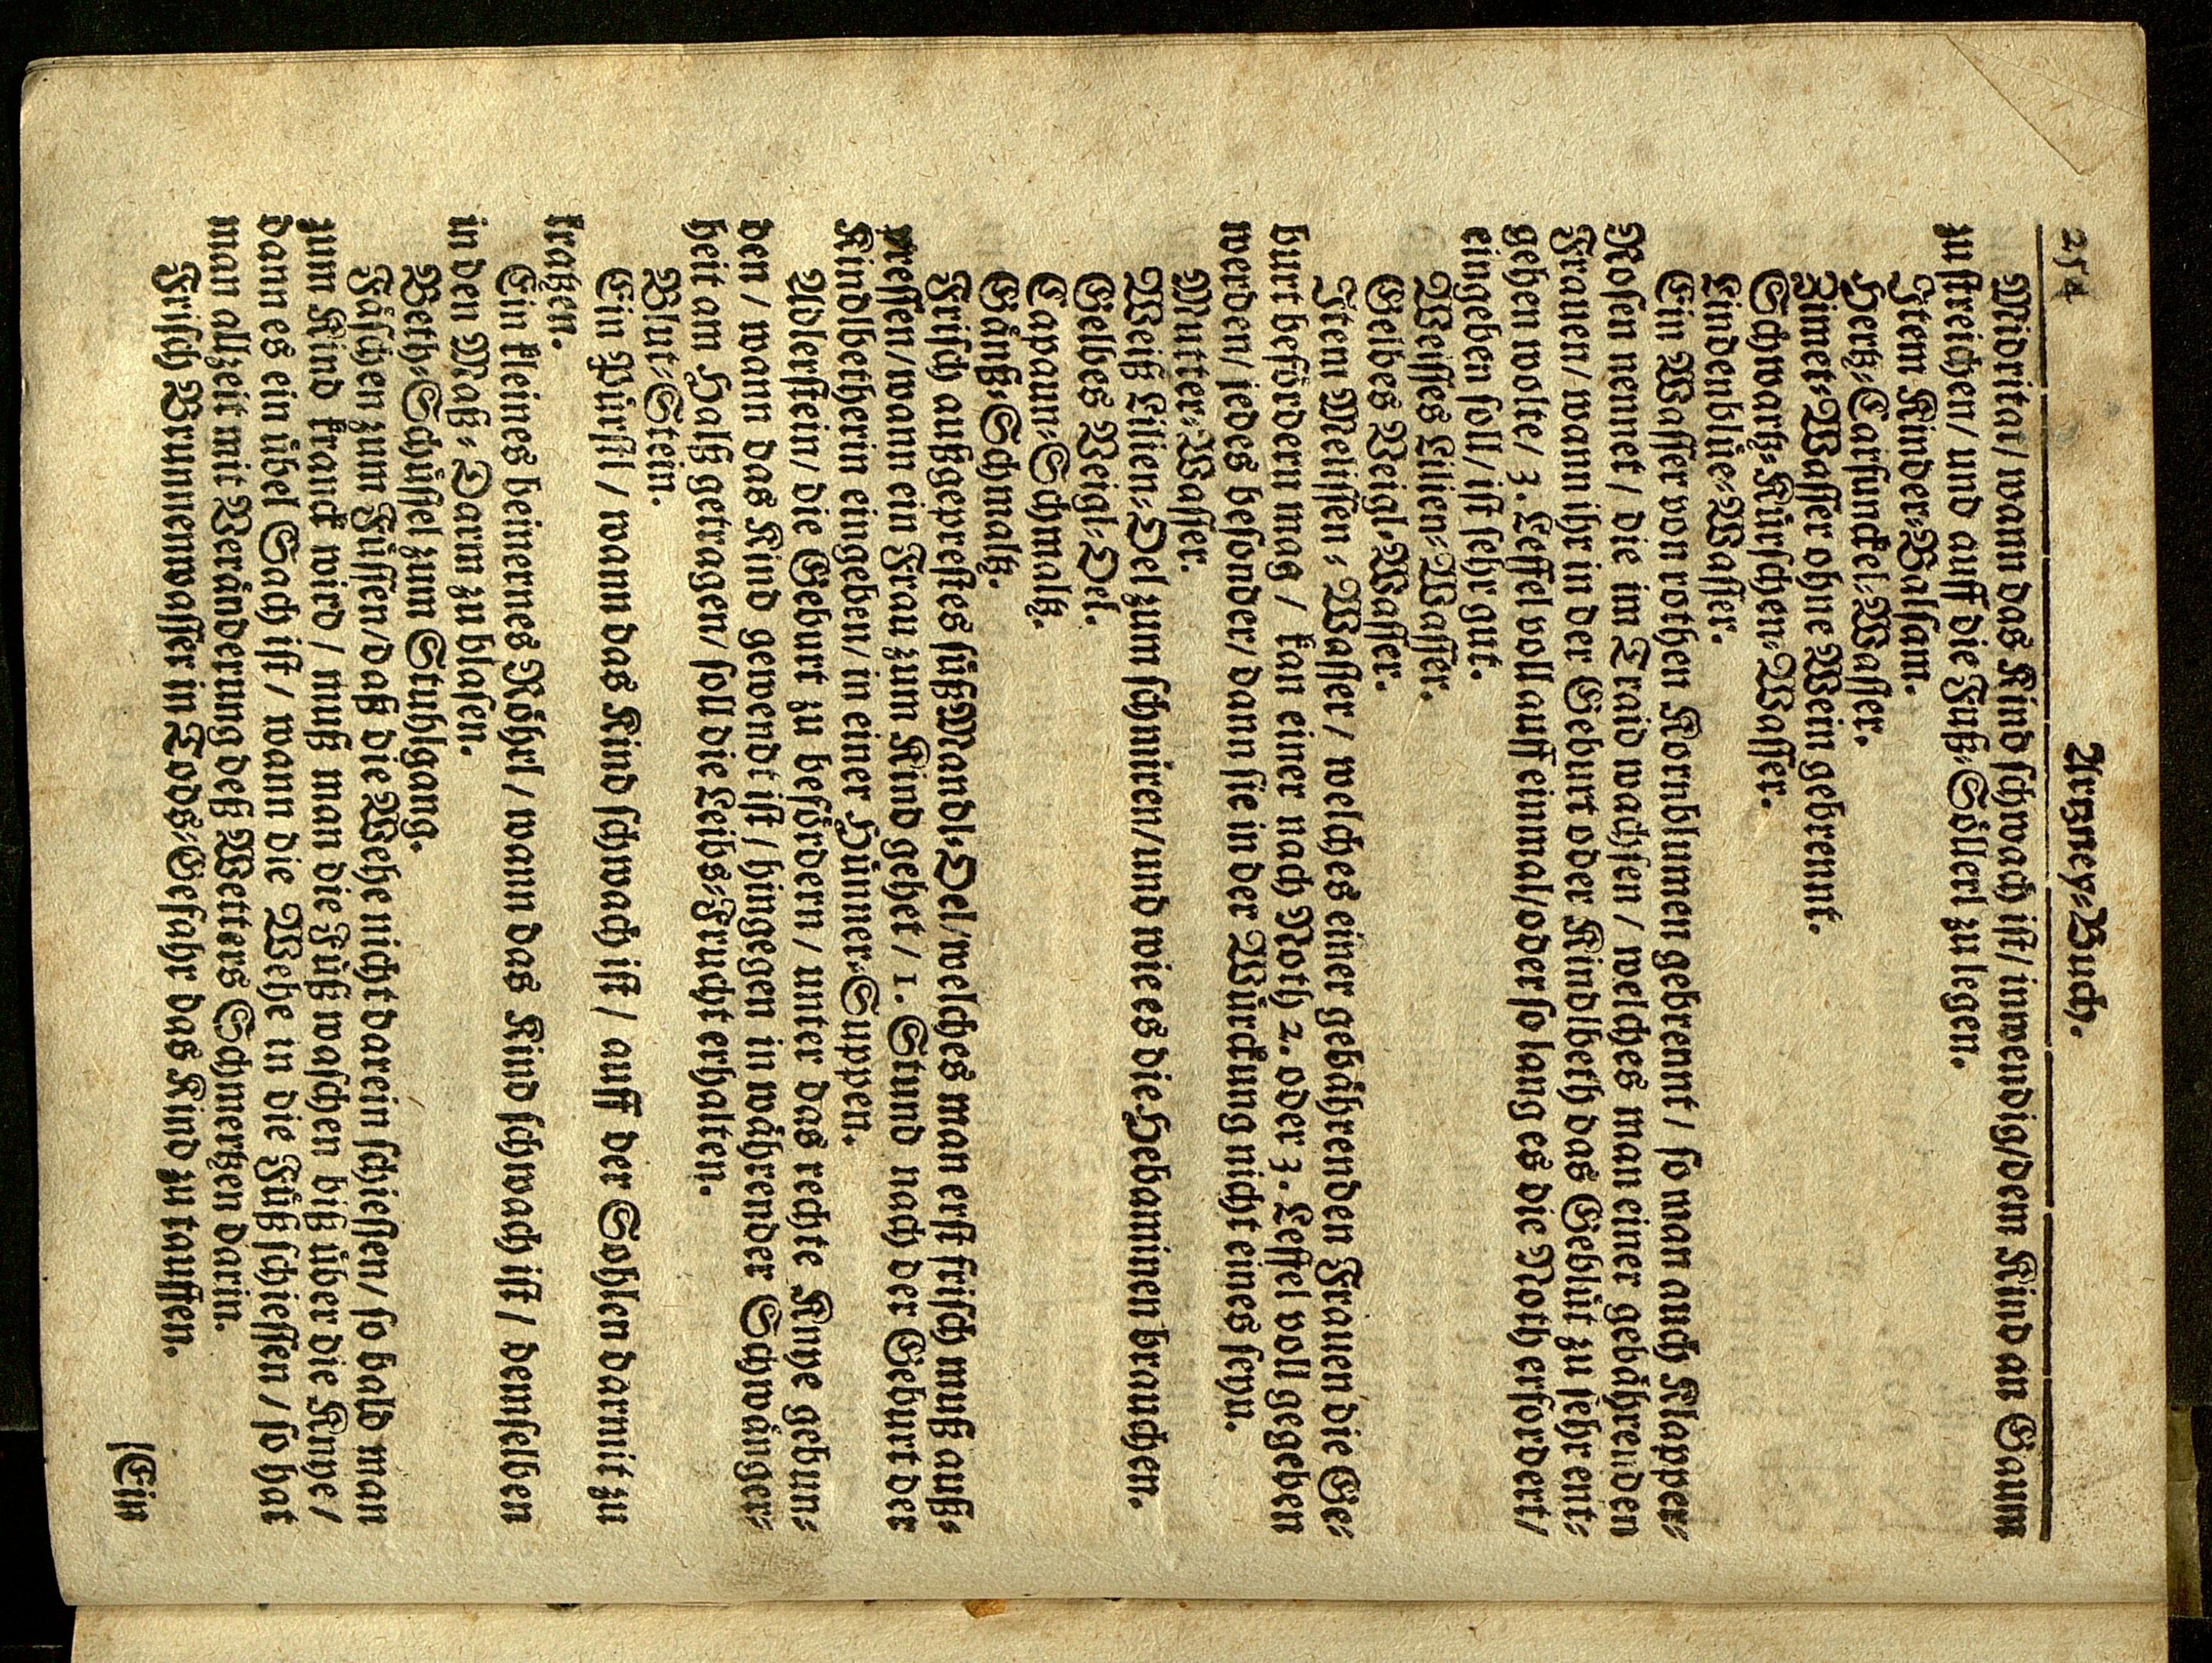 254
Artzney⸗Buch.
Midritat/ wann das Kind schwach ist/ inwendig/dem Kind an Gaum
zu streichen/ und auff die Fuß⸗Söllerl zu legen.
Item Kinder⸗Balsam.
Hertz⸗Carfunckel⸗Wasser.
Zimet⸗Wasser ohne Wein gebrennt.
Schwartz⸗Kürschen⸗Wasser.
Lindenblüe⸗Wasser.
Ein Wasser von rothen Kornblumen gebrennt / so man auch Klapper⸗
Rosen nennet / die im Traid wachsen / welches man einer gebährenden
Frauen/ wann ihr in der Geburt oder Kindlbeth das Geblüt zu sehr ent⸗
gehen wolte/ 3. Leffel voll auff einmal/oder so lang es die Noth erfordert/
eingeben soll/ ist sehr gut.
Weisses Lilien⸗Wasser.
Gelbes Veigl⸗Wasser.
Item Melissen ⸗ Wasser / welches einer gebährenden Frauen die Ge⸗
burt befördern mag / kan einer nach Noth 2. oder 3. Leffel voll gegeben
werden/ jedes besonder/ dann sie in der Würckung nicht eines seyn.
Mutter⸗Wasser.
Weiß Lilien⸗Oel zum schmiren/und wie es die Hebammen brauchen.
Gelbes Veigl⸗Oel.
Capaun⸗Schmaltz.
Gänß⸗Schmaltz.
Frisch außgeprestes süß Mandl⸗Oel/welches man erst frisch muß auß⸗
pressen/wann ein Frau zum Kind gehet / 1. Stund nach der Geburt der
Kindlbetherin eingeben/ in einer Hünner⸗Suppen.
Adlerstein/ die Geburt zu befördern / unter das rechte Knye gebun⸗
den / wann das Kind gewendt ist / hingegen in währender Schwanger⸗
heit am Halß getragen/ soll die Leibs⸗Frucht erhalten.
Blut⸗Stein.
Ein Pürstl / wann das Kind schwach ist / auff der Sohlen darmit zu
kratzen.
Ein kleines beinernes Röhrl / wann das Kind schwach ist / demselben
in den Maß⸗Darm zu blasen.
Beth⸗Schüssel zum Stuhlgang.
Täschen zum Füssen/daß die Wehe nicht darein schiessen/ so bald man
zum Kind kranck wird / muß man die Füß waschen biß über die Knye/
dann es ein übel Sach ist / wann die Wehe in die Füß schiessen / so hat
man allzeit mit Veränderung deß Wetters Schmertzen darin.
Frisch Brunnenwasser in Tods⸗Gefahr das Kind zu tauffen.
Ein